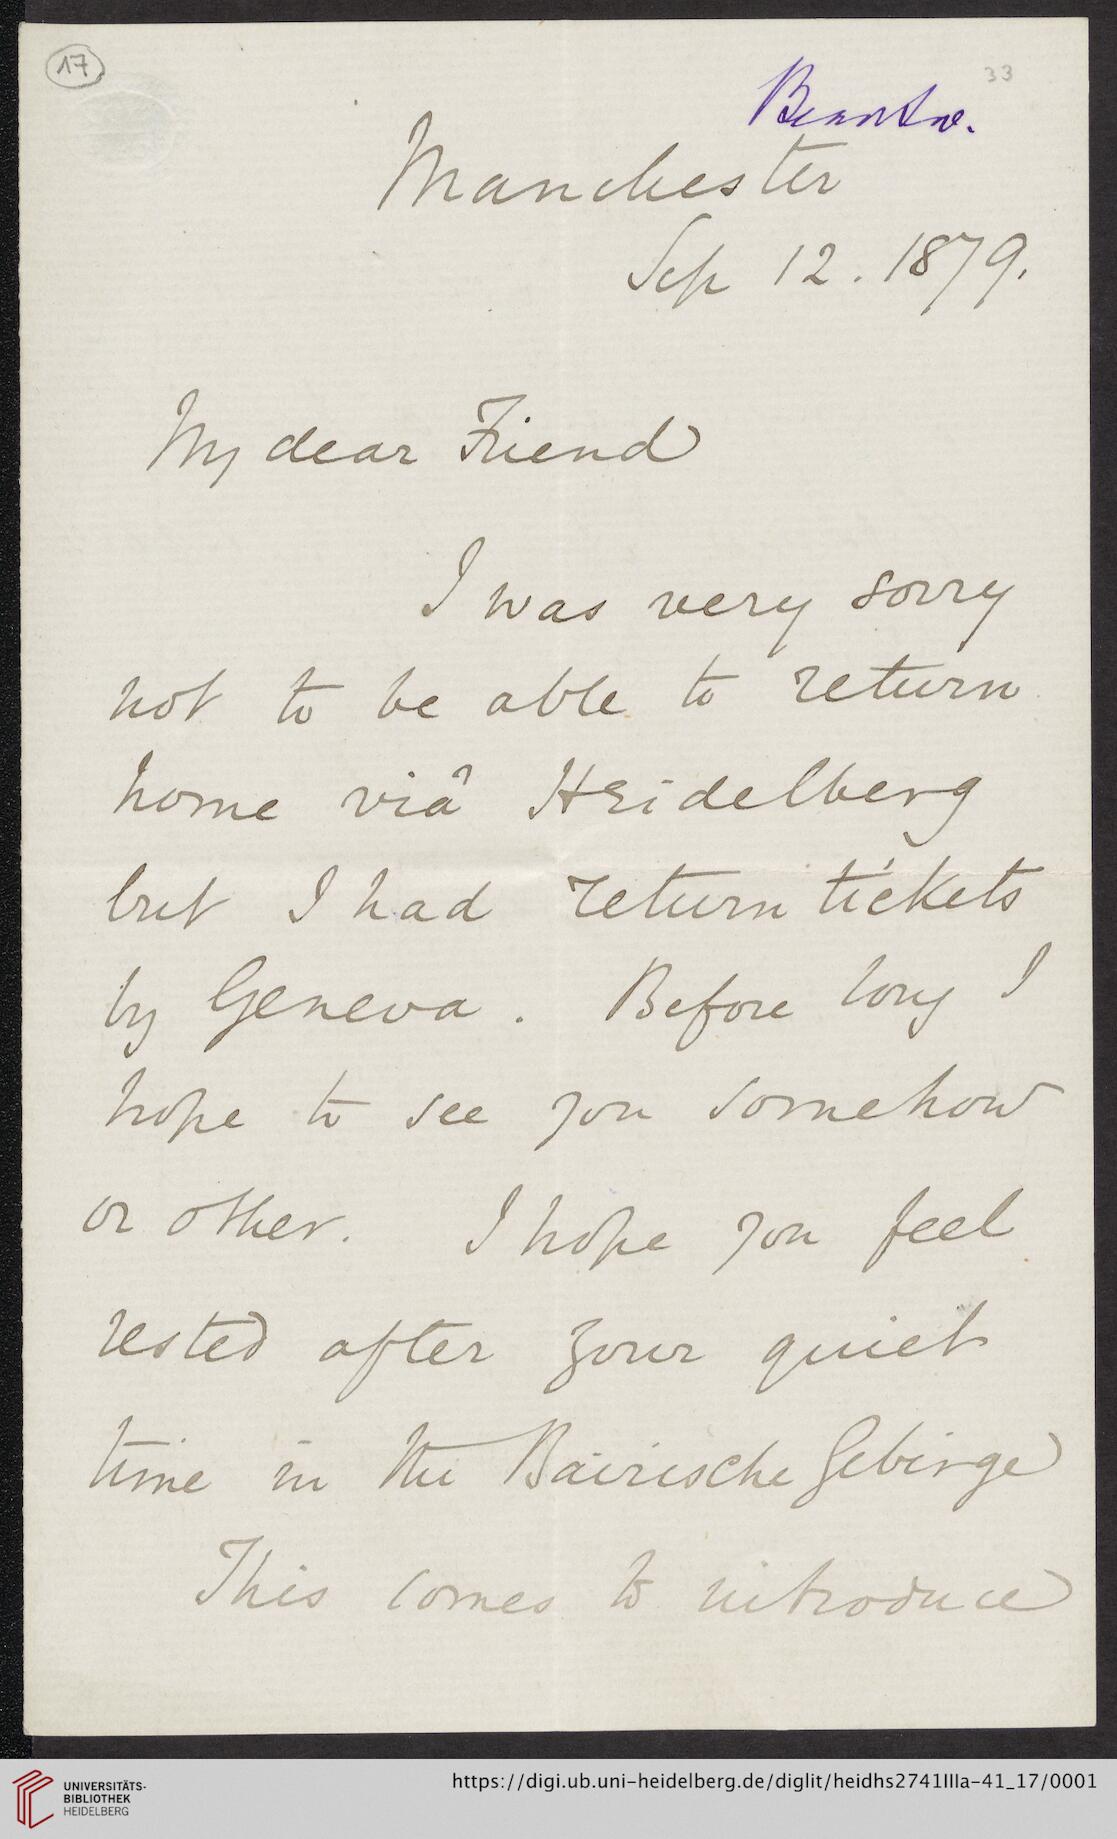 17
33
Beantw.
Manchester
Sep 12. 1879.
My dear Friend
I was very sorry
not to be able to return
home viâ Heidelberg
but I had return tickets
by Geneva. Before long I
hope to see you somehow
or other. I hope you feel
rested after your quiet
time in the Bairische Gebirge
This comes to introduce
UNIVERSITÄTS-
BIBLIOTHEK
HEIDELBERG
https://digi.ub.uni-heidelberg.de/diglit/heidhs2741IIIa-41_17/0001